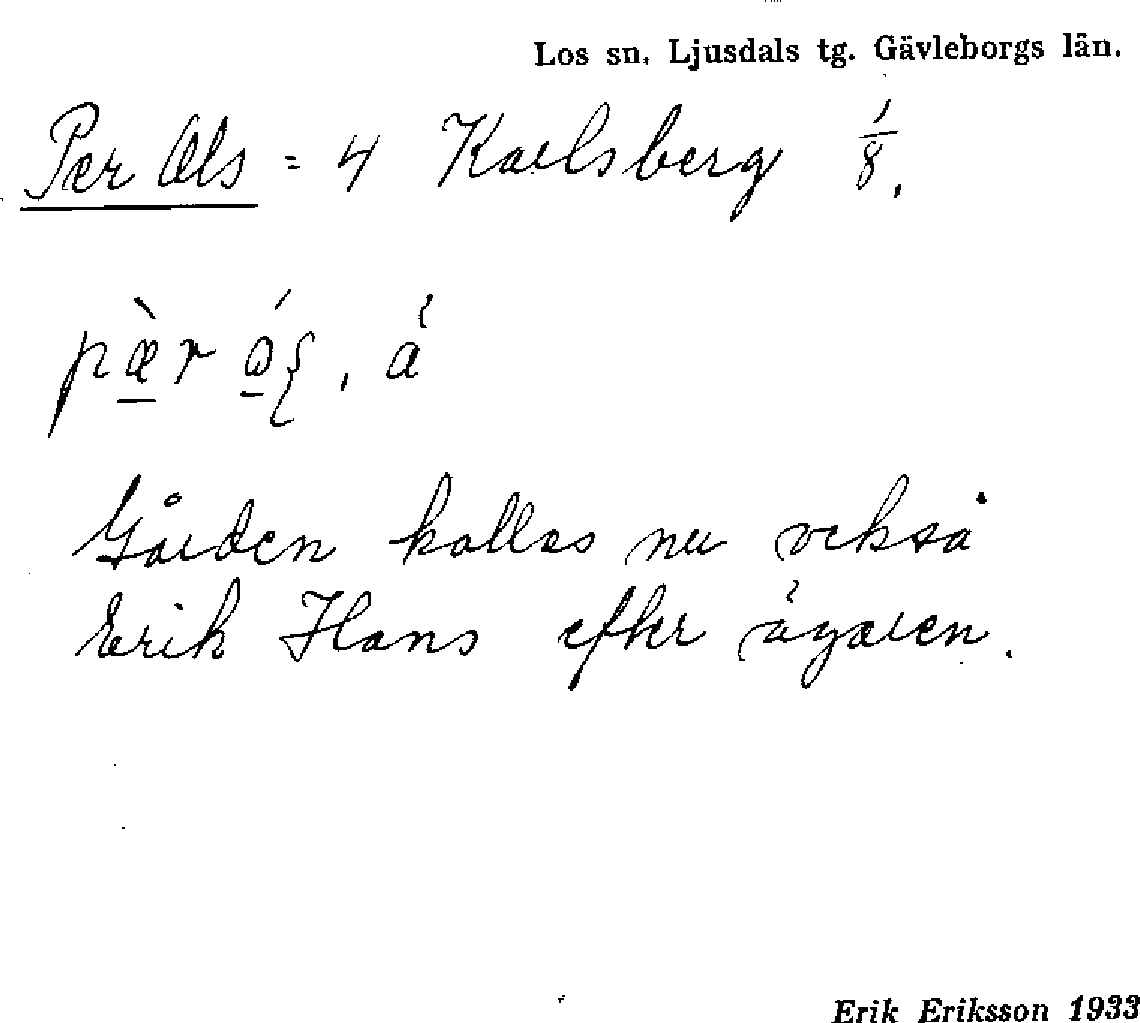 Los sn. Ljusdals tg. Gävleborgs län.
Per Ols = 4 Karlsberg 1/8.
Gården kallas nu också
Erik Hans efter ägaren.
Erik Eriksson 1933